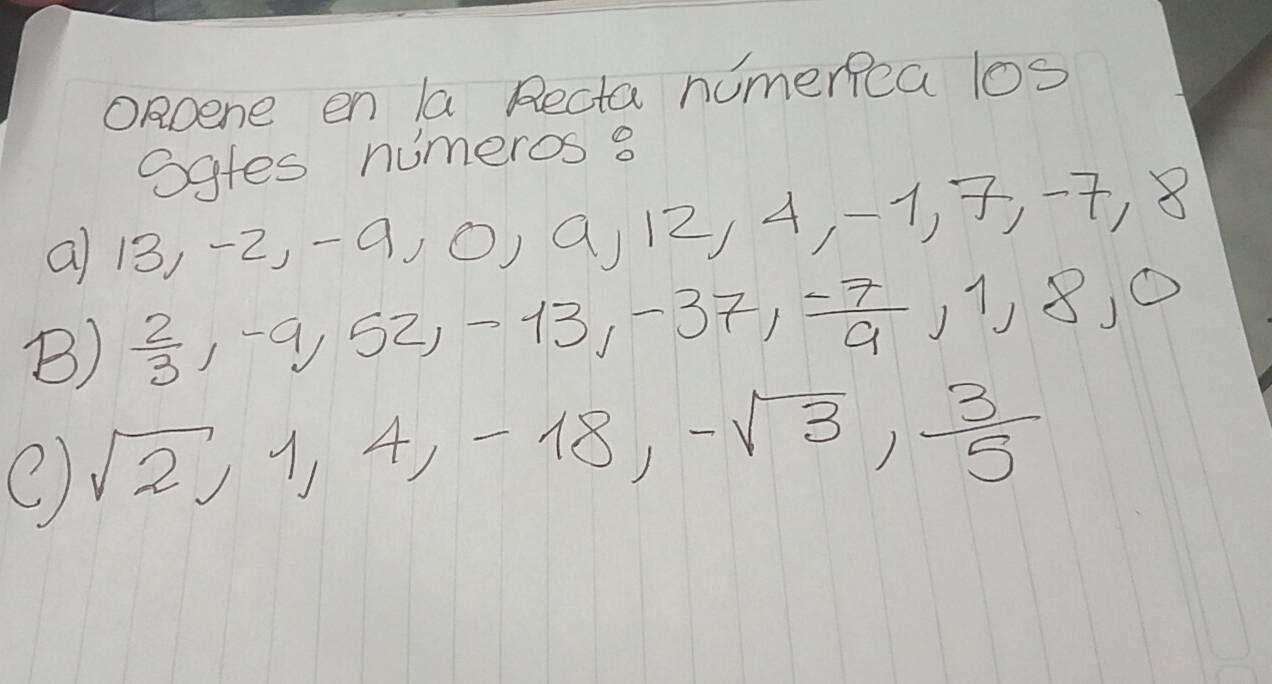 ORDene en la Recta númerica los
Sgtes números:
a) 13, -2, -9, 0, 9, 12, 4, -1, 7, -7, 8
B) 2/3, -9, 52, -13, -37, -7/9, 1, 8, 0
C) √2, 1, 4, -18, -√3, 3/5